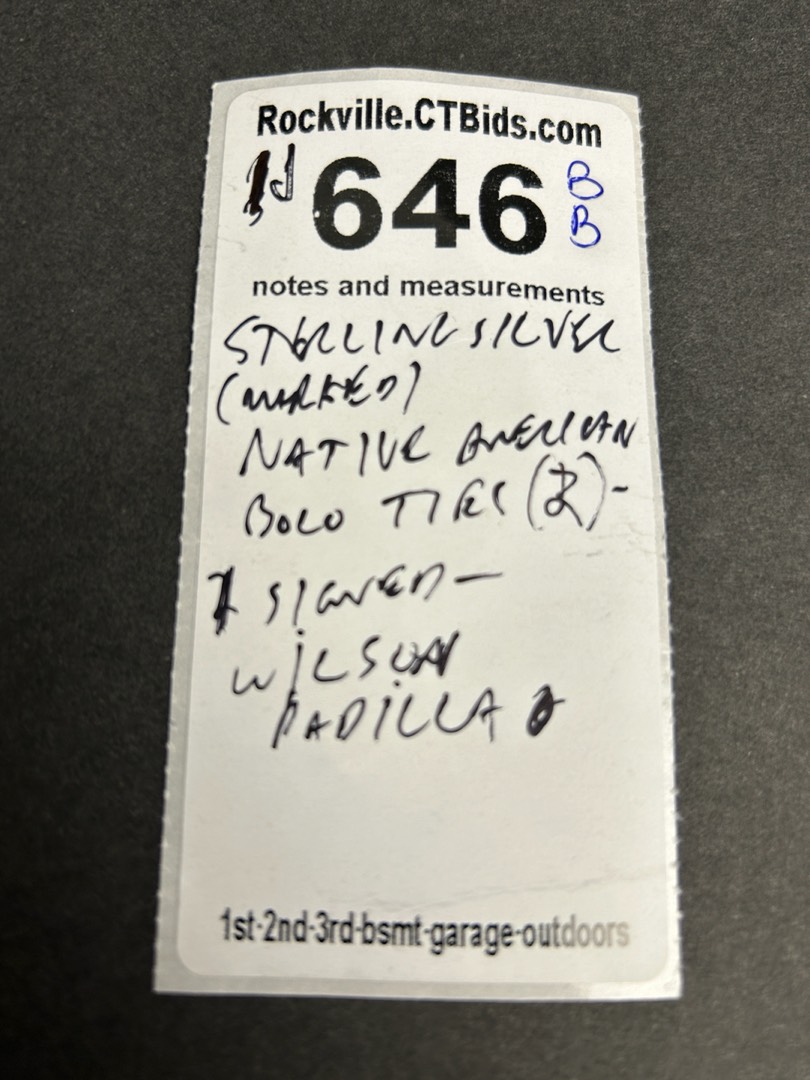 Rockville.CTBids.com
646 B
B
notes and measurements
STERLING SILVER
(MARKED)
NATIVE AMERICAN
BOLO TIES (2)-
1 SIGNED -
WILSON
PADILLA
1st-2nd-3rd-bsmt-garage-outdoors